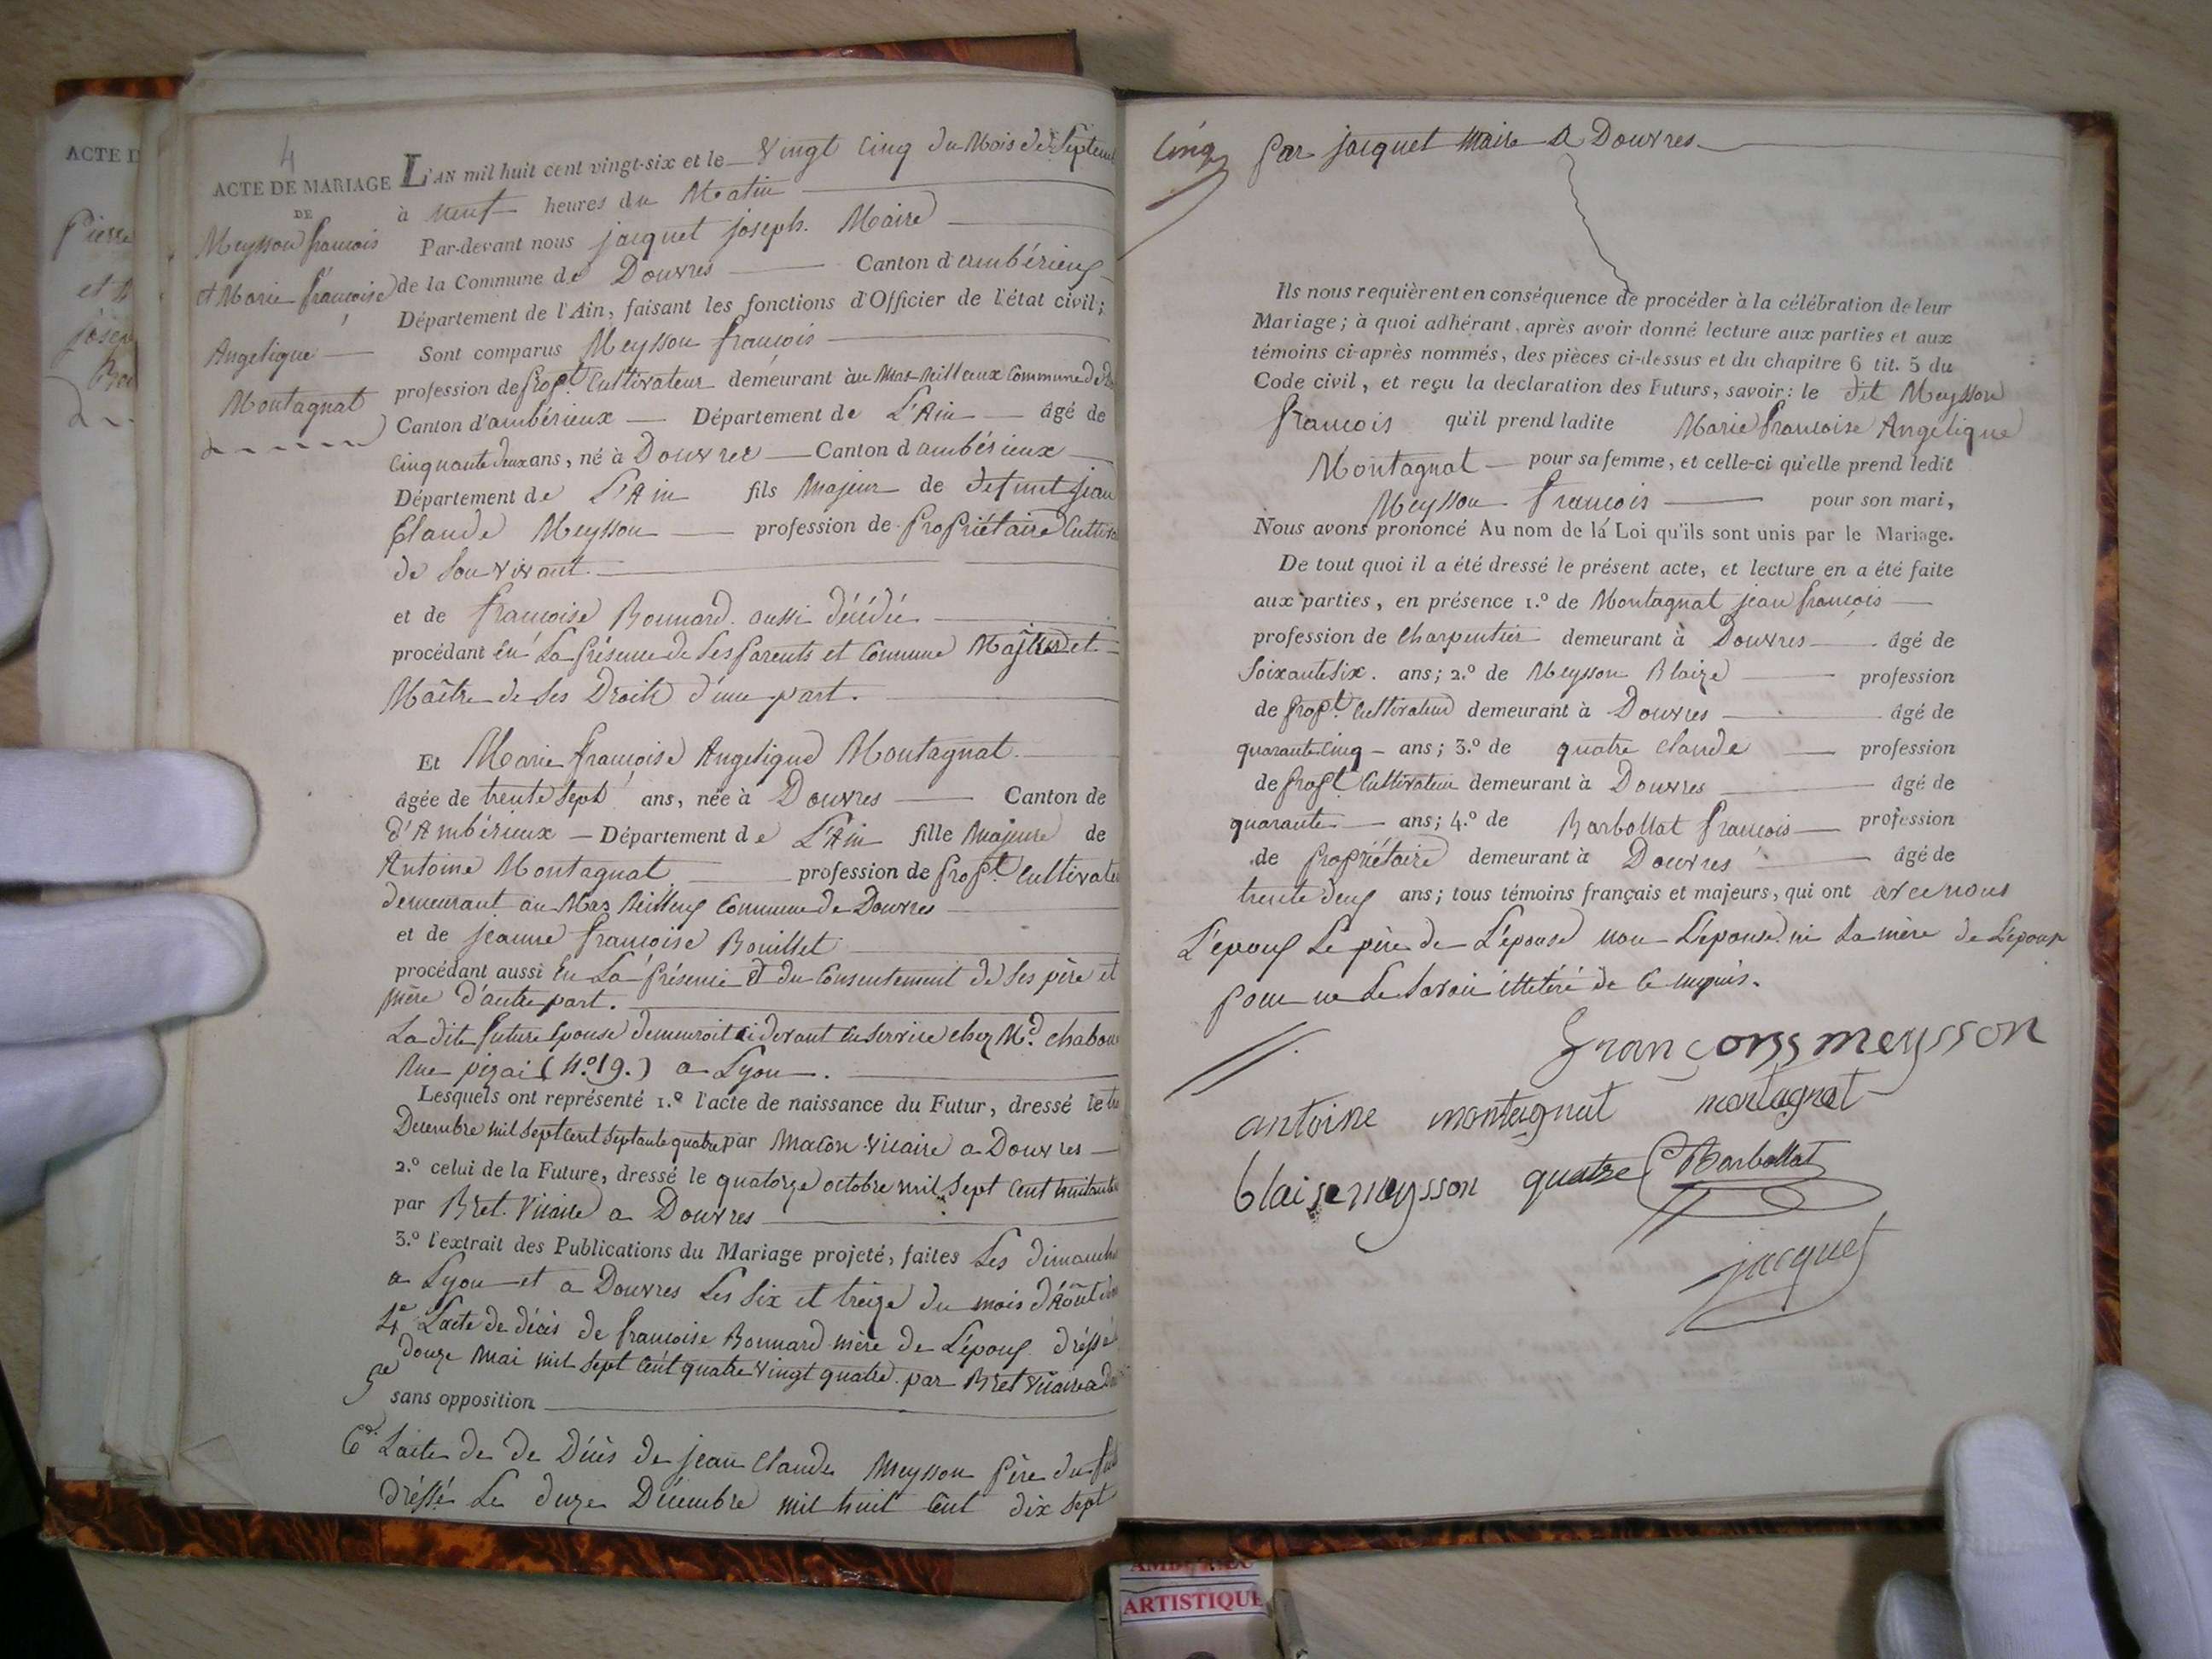 ACTE D
Pierre
et
josep
4
ACTE DE MARIAGE
DE
Meysson francois
et Marie françoise
Angelique
Montagnat
L'AN mil huit cent vingt-six et le vingt cinq du Mois de Septem
à neuf heures du Matin
Par-devant nous jacquet joseph. Maire
de la Commune de Douvres Canton d'ambérieux
Département de l'Ain, faisant les fonctions d'Officier de l'état civil;
Sont comparus Meysson francois
profession de propt. Cultivateur demeurant au Mas Rilleux Commune de D
Canton d'ambérieux Département de L'Ain âgé de
Cinquante deux ans, né à Douvres Canton d'ambérieux
Département de L'Ain fils Majeur de defunt jean
Claude Meysson profession de Propriétaire Cultiva
de Son vivant.
et de francoise Bonnard. aussi décédée
procédant en La présence de Ses parents et Comme Majeur et
Maître de Ses Droits d'une part.
Et Marie françoise Angelique Montagnat.
âgée de trente Sept ans, née à Douvres Canton de
d'Ambérieux Département de L'Ain fille Majeure de
Antoine Montagnat profession de propt. Cultivate
demeurant au Mas Rilleux Commune de Douvres
et de jeanne francoise Bouillet
procédant aussi En La présence et du Consentement de Ses père et
mère d'autre part.
La dite future Epouse demeuroit ci devant en Service chez Md. chabou
Rue pizai (No. 19.) a Lyon.
Lesquels ont représenté 1.º l'acte de naissance du Futur, dressé le
Decembre mil Sept cent Septante quatre par Macon Vicaire a Douvres
2.º celui de la Future, dressé le quatorze octobre mil Sept Cent huitante
par Bret. Vicaire a Douvres
3.º l'extrait des Publications du Mariage projeté, faites Les dimanche
a Lyon et a Douvres Les Six et treize du mois d'Août
4e L'acte de décès de francoise Bonnard mère de L'epoux dréssé
douze Mai mil Sept Cent quatre vingt quatre. par Bret Vicaire a
5e sans opposition
6e. L'acte de de Décès de jean Claude Meysson père du
dréssé Le duze Décembre mil huit Cent dix Sept
Cinq
par jacquet Maire a Douvres
Ils nous requièrent en conséquence de procéder à la célébration de leur
Mariage; à quoi adhérant, après avoir donné lecture aux parties et aux
témoins ci-après nommés, des pièces ci-dessus et du chapitre 6 tit. 5 du
Code civil, et reçu la declaration des Futurs, savoir: le dit Meysson
francois qu'il prend ladite Marie francoise Angelique
Montagnat pour sa femme, et celle-ci qu'elle prend ledit
Meysson francois pour son mari,
Nous avons prononcé Au nom de la Loi qu'ils sont unis par le Mariage.
De tout quoi il a été dressé le présent acte, et lecture en a été faite
aux parties, en présence 1.º de Montagnat jean françois
profession de Charpentier demeurant à Douvres âgé de
Soixante Six. ans; 2.º de Meysson Blaize profession
de propt. Cultivateur demeurant à Douvres âgé de
quarante Cinq ans; 3.º de quatre claude profession
de propt. Cultivateur demeurant à Douvres âgé de
quarante ans; 4.º de Barbollat francois profession
de Propriétaire demeurant à Douvres âgé de
trente deux ans; tous témoins français et majeurs, qui ont avec nous
L'epoux Le père de L'epouse non L'epouse ni La mère de L'epouse
pour ne Le Savoir illetéré de ce enquis.
françois meysson
antoine montagnat montagnat
blaise meysson quatre Barbollat
jacquet
ARTISTIQUE